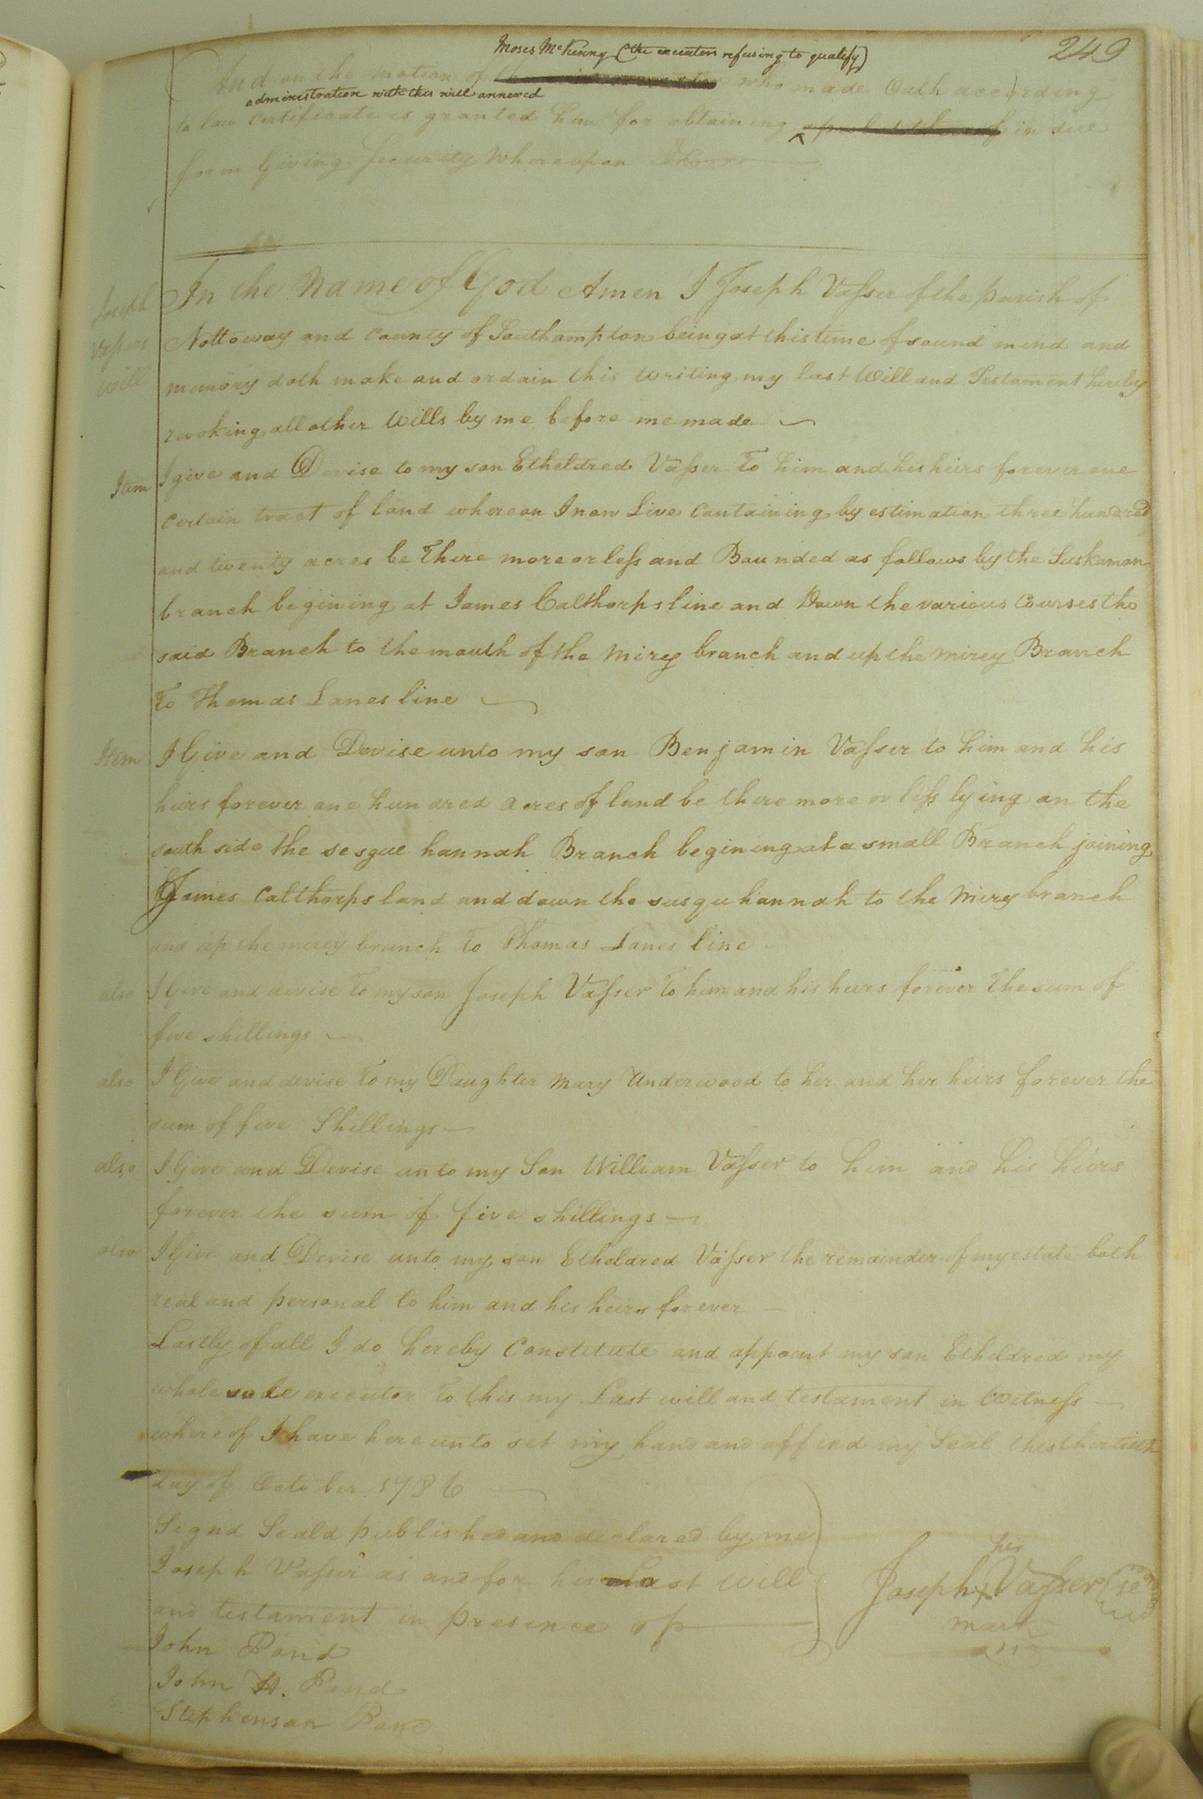 249
Moses McKenny (the executors refusing to qualify)
And on the motion of who made Oath according
administration with this will annexed
to law Certificate is granted him for obtaining in due
form Giving Security Whereupon
In the Name of God Amen I Joseph Vasser of the parish of
Joseph
Nottoway and County of Southampton being at this time of sound mind and
Vassers
memory doth make and ordain this writing my last Will and Testament hereby
Will
revoking all other Wills by me before me made
Item I give and Devise to my son Etheldred Vasser To him and his heirs forever one
certain tract of land whereon I now Live Containing by estimation three hundred
and twenty acres be There more or less and Bounded as follows by the
branch begining at James Calthorps line and Down the various Courses the
said Branch to the mouth of the Mirey branch and up the mirey Branch
To Thomas Lanes line
Item I Give and Devise unto my son Benjamin Vasser to him and his
heirs forever one hundred acres of land be there more or less lying on the
south side the sesque hannah Branch begining at a small Branch joining
James Calthorps land and down the susquehannah to the Mirey branch
and up the mirey branch To Thomas Lanes line
also I Give and devise To my son Joseph Vasser To him and his heirs forever The sum of
five shillings
also I Give and devise To my Daughter Mary Underwood to her and her heirs forever the
sum of five Shillings
also I Give and Devise unto my Son William Vasser to him and his heirs
forever the sum of five shillings
also I Give and Devise unto my son Etheldred Vasser the remainder of my estate both
real and personal to him and his heirs forever
Lastly of all I do hereby Constitute and appoint my son Etheldred my
whole sole executor To this my Last will and testament in Witness
whereof I have hereunto set my hand and affixd my Seal this thertieth
day of October 1786
Signd Seald published and declared by me
Joseph Vasser as and for his last Will
and testament in presence of
his
Joseph X Vasser
mark
John Pond
John H. Pond
Stephenson Pond